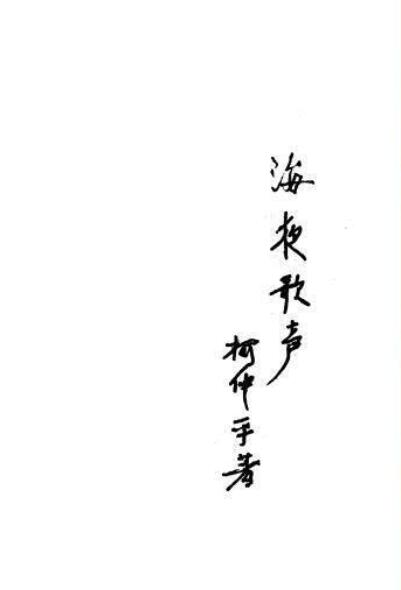 海夜歌声
柯仲平著